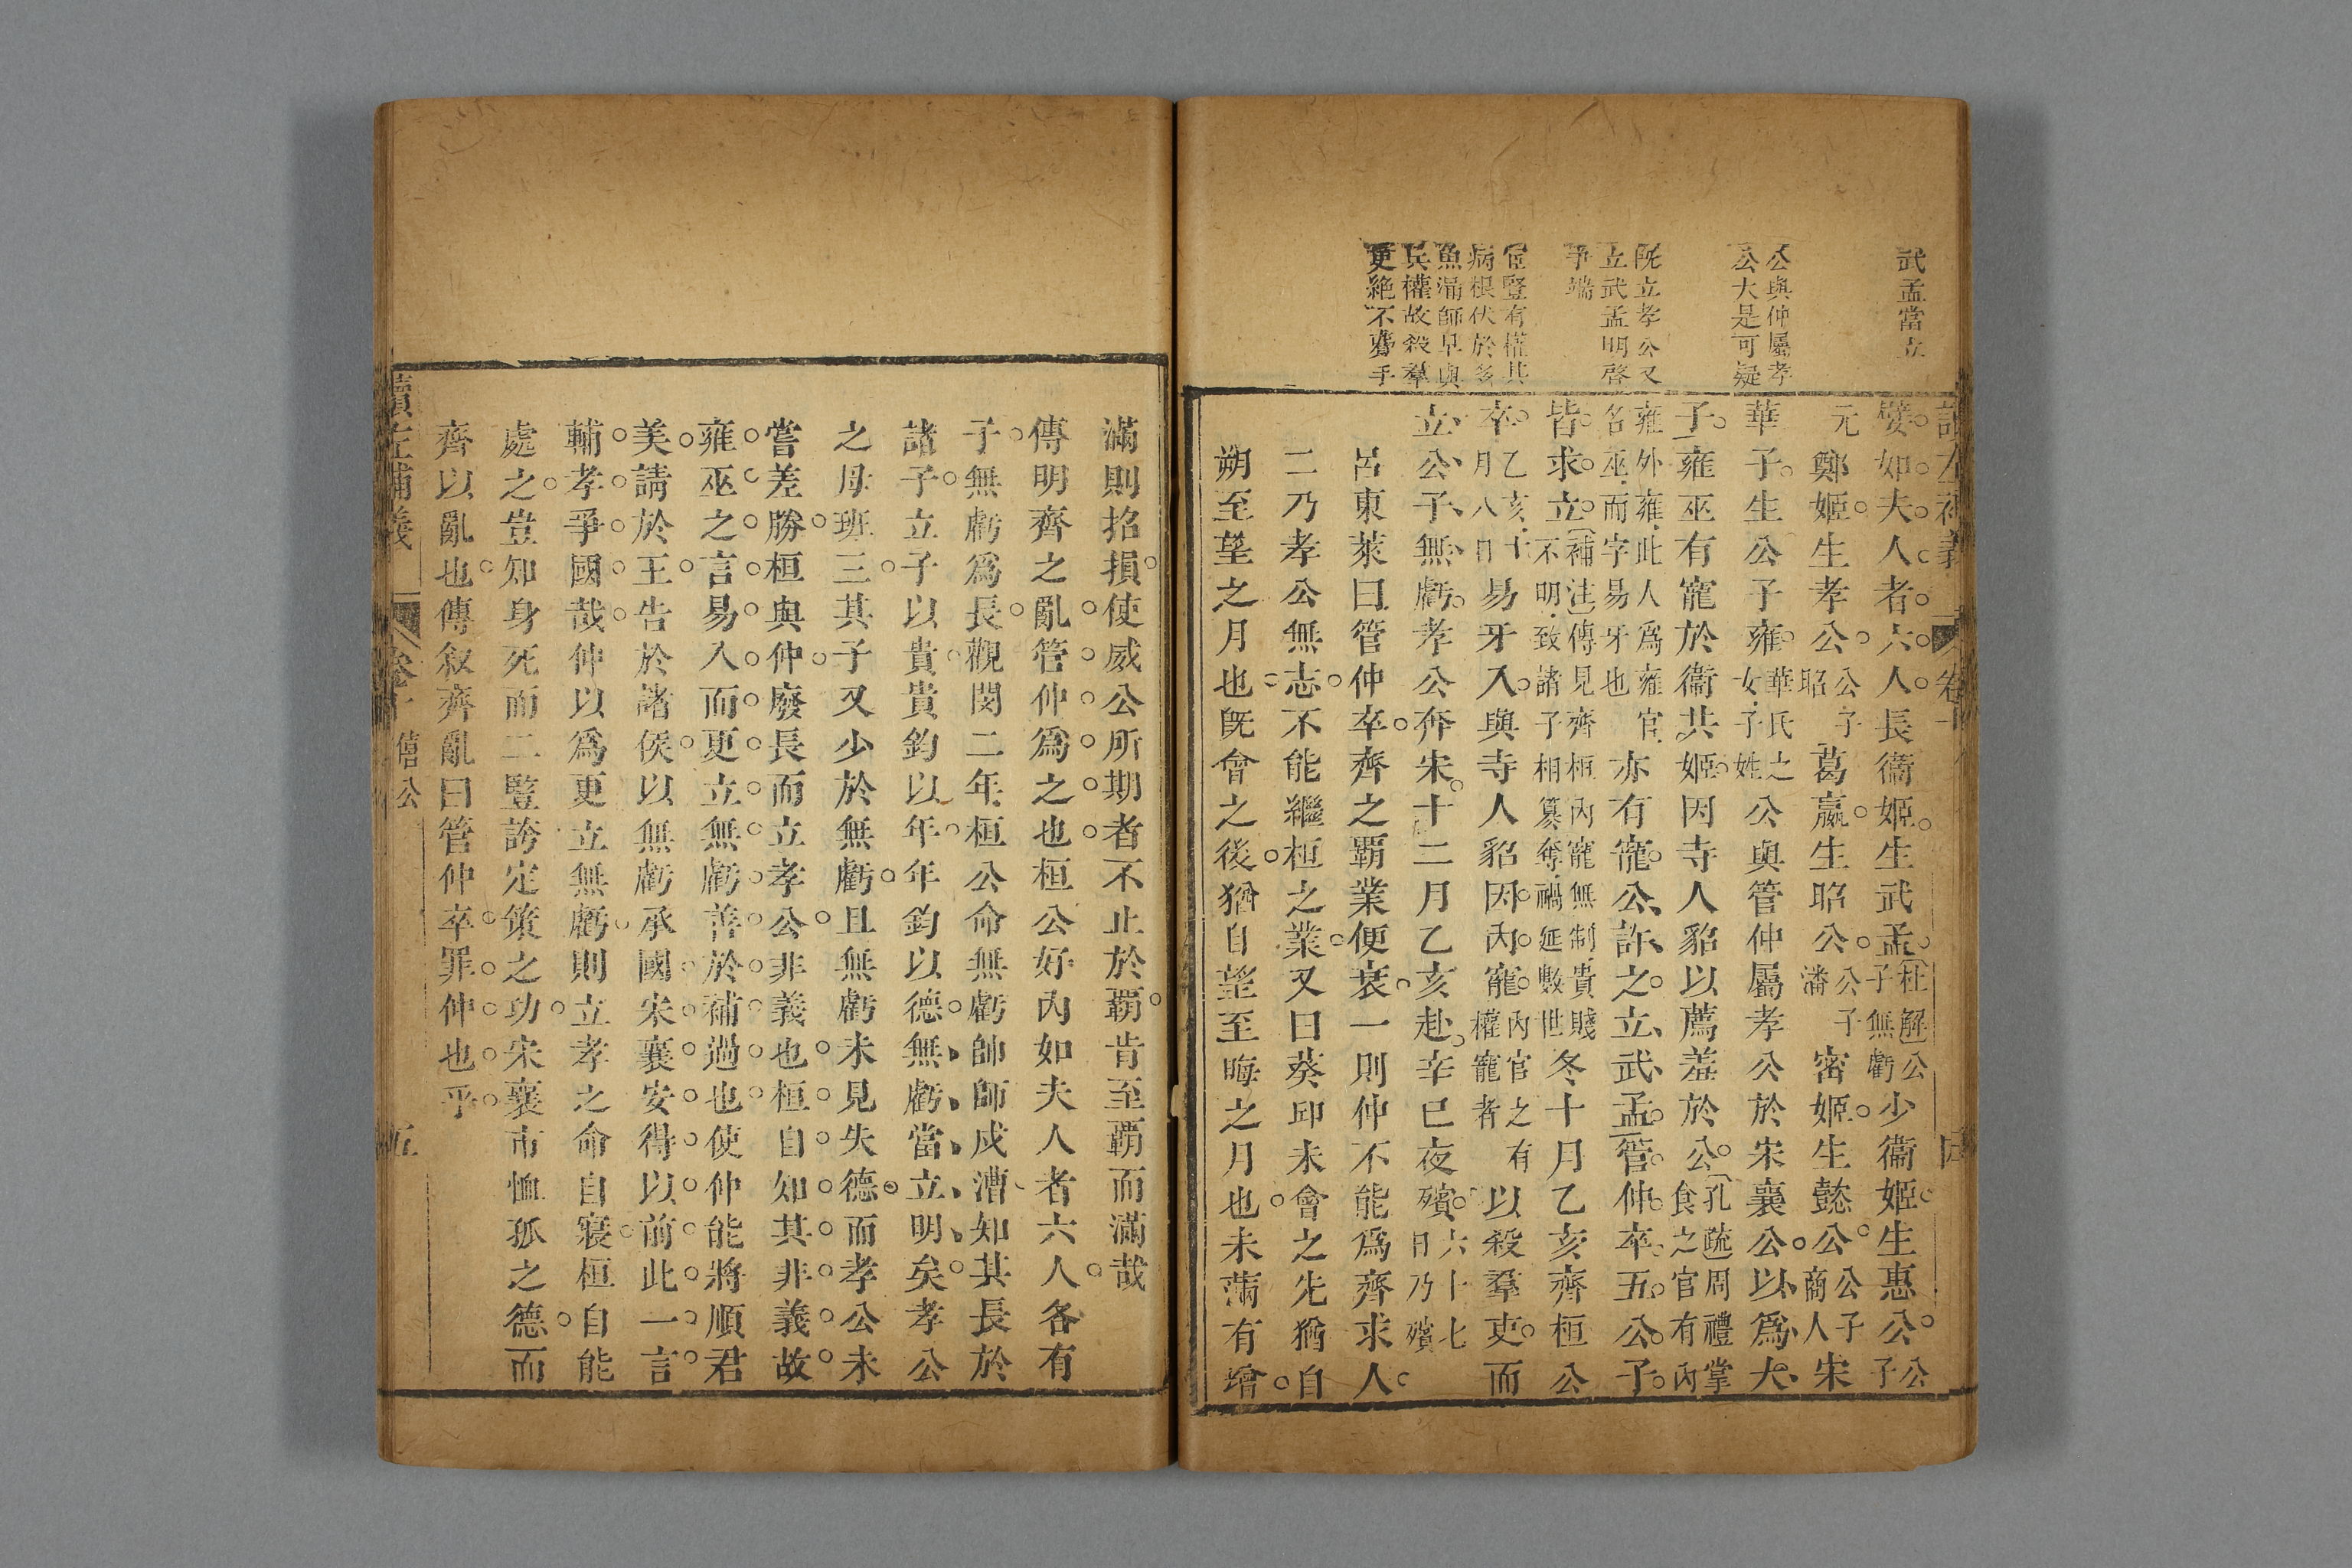 武孟當立
公與仲屬孝
公大是可疑
既立孝公又
立武孟明啓
爭端
宦豎有權其
病根伏於多
魚漏師早與
兵權故殺羣
更絶不費手
讀左補義 卷十
嬖如夫人者六人長衞姬生武孟杜解公子無虧少衞姬生惠公公子
元鄭姬生孝公公子昭葛嬴生昭公公子潘密姬生懿公公子商人宋
華子生公子雍華氏之女子姓公與管仲屬孝公於宋襄公以爲大
子雍巫有寵於衞共姬因寺人貂以薦羞於公孔疏周禮掌食之官有內
雍外雍此人爲雍官名巫而字易牙也亦有寵公許之立武孟管仲卒五公子
皆求立補注傳見齊桓內寵無制貴賤不明致諸子相簒奪禍延數世冬十月乙亥齊桓公
卒乙亥十月八日易牙入與寺人貂因內寵內官之有權寵者以殺羣吏而
立公子無虧孝公奔宋十二月乙亥赴辛巳夜殯六十七日乃殯
呂東萊曰管仲卒齊之覇業便衰一則仲不能爲齊求人
二乃孝公無志不能繼桓之業又曰葵邱未會之先猶自
朔至望之月也既會之後猶自望至晦之月也未滿有增
滿則招損使威公所期者不止於覇肯至覇而滿哉
傳明齊之亂管仲爲之也桓公好內如夫人者六人各有
子無虧爲長觀閔二年桓公命無虧帥師戍漕知其長於
諸子立子以貴貴鈞以年年鈞以德無虧當立明矣孝公
之母班三其子又少於無虧且無虧未見失德而孝公未
嘗差勝桓與仲廢長而立孝公非義也桓自知其非義故
雍巫之言易入而更立無虧善於補過也使仲能將順君
美請於王告於諸侯以無虧承國宋襄安得以前此一言
輔孝爭國哉仲以爲更立無虧則立孝之命自寢桓自能
處之豈知身死而二豎誇定策之功宋襄市恤孤之德而
齊以亂也傳叙齊亂曰管仲卒罪仲也乎
讀左補義 卷十 僖公 五